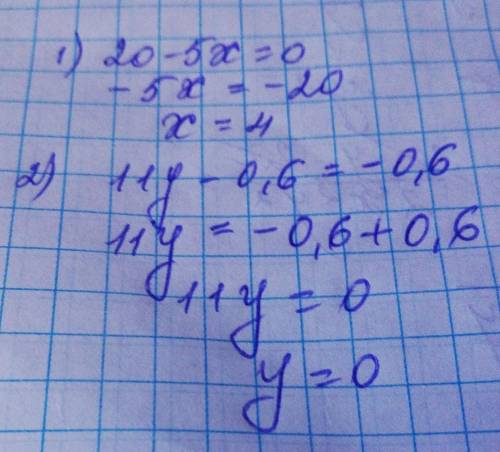 1) 20 - 5x = 0
- 5x = -20
x = 4
2) 11y - 0,6 = -0,6
11y = -0,6 + 0,6
11y = 0
y = 0